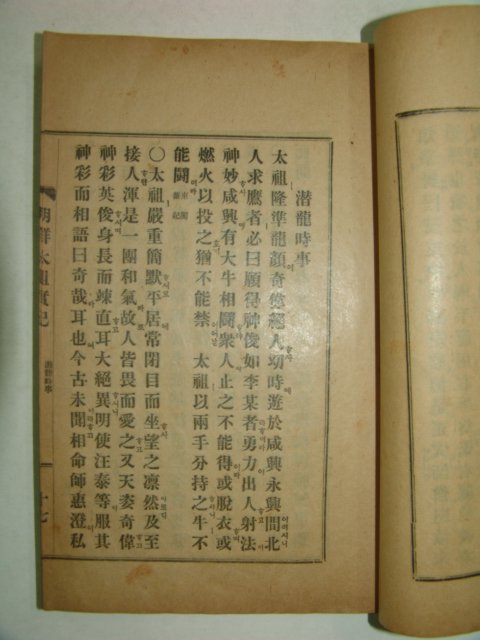 潛龍時事
太祖隆準龍顏奇偉絕人幼時遊於咸興永興間北
人求鷹者必曰願得神俊如李某者勇力出人射法
神妙咸興有大牛相鬪衆人止之不能得或脫衣或
燃火以投之猶不能禁 太祖以兩手分持之牛不
能鬪 東閣雜記
〇太祖嚴重簡默平居常閉目而坐望之凛然及至
接人渾是一團和氣故人皆畏而愛之又天姿奇偉
神彩英俊身長而竦直耳大絕異明使汪泰等服其
神彩而相語曰奇哉耳也今古未聞相命師惠澄私
朝鮮太祖實記 潛龍時事 十七